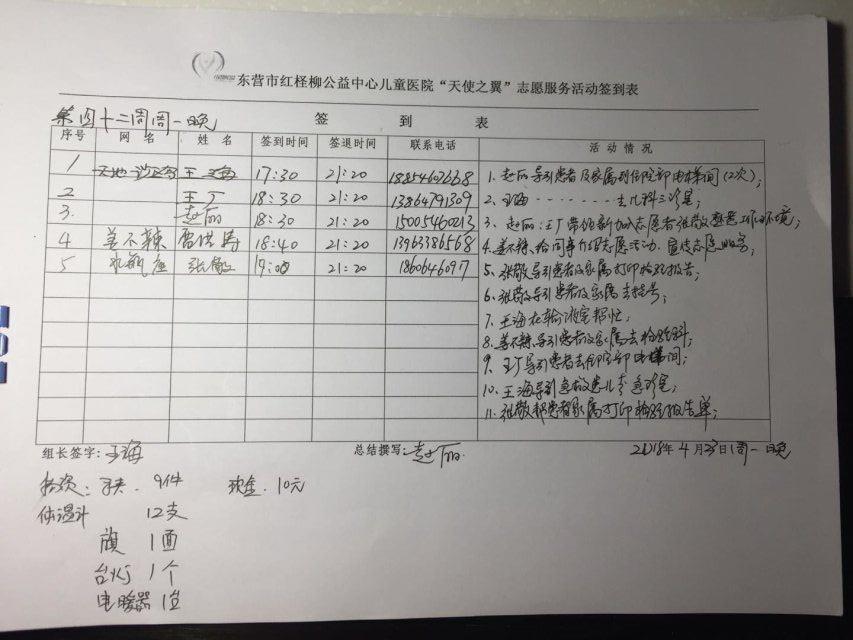 东营市红柽柳公益中心儿童医院“天使之翼”志愿服务活动签到表
第四十二周周一晚 签 到 表
序号 网名 姓名 签到时间 签退时间 联系电话 活动情况
1 天地 王海 17:30 21:20 18854607668
2 王丁 18:30 21:20 13864791309
3. 赵丽 18:30 21:20 15005460213
4 姜不辣 18:40 21:20 13963386568
5 水瓶座 张敬 19:00 21:20 1860646097
1. 赵丽导引患者及家属到住院部电梯间(2次);
2. 王海 〃 去儿科三诊室;
3. 赵丽:王丁带领新加入志愿者张敬熟悉工作环境;
4. 姜不辣给同事介绍志愿活动、宣传志愿服务;
5. 张敬导引患者及家属打印检验报告;
6. 张敬导引患者及家属去挂号;
7. 王海在输液室帮忙;
8. 姜不辣导引患者及家属去检验科;
9. 王丁导引患者去住院部电梯间;
10. 王海导引急救患儿去急诊室;
11. 张敬帮患者家属打印检验报告单;
组长签字:王海 总结撰写:赵丽. 2018年4月23日(周一晚
物资:马夹.9件 现金.10元
体温计 12支
旗 1面
台灯 1个
电暖器 1台